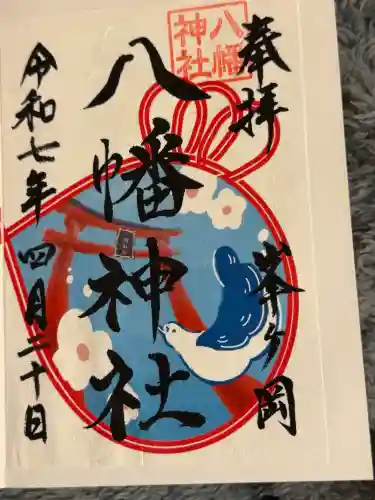 奉拝
峯ヶ岡
八幡神社
八幡神社
令和七年四月二十日